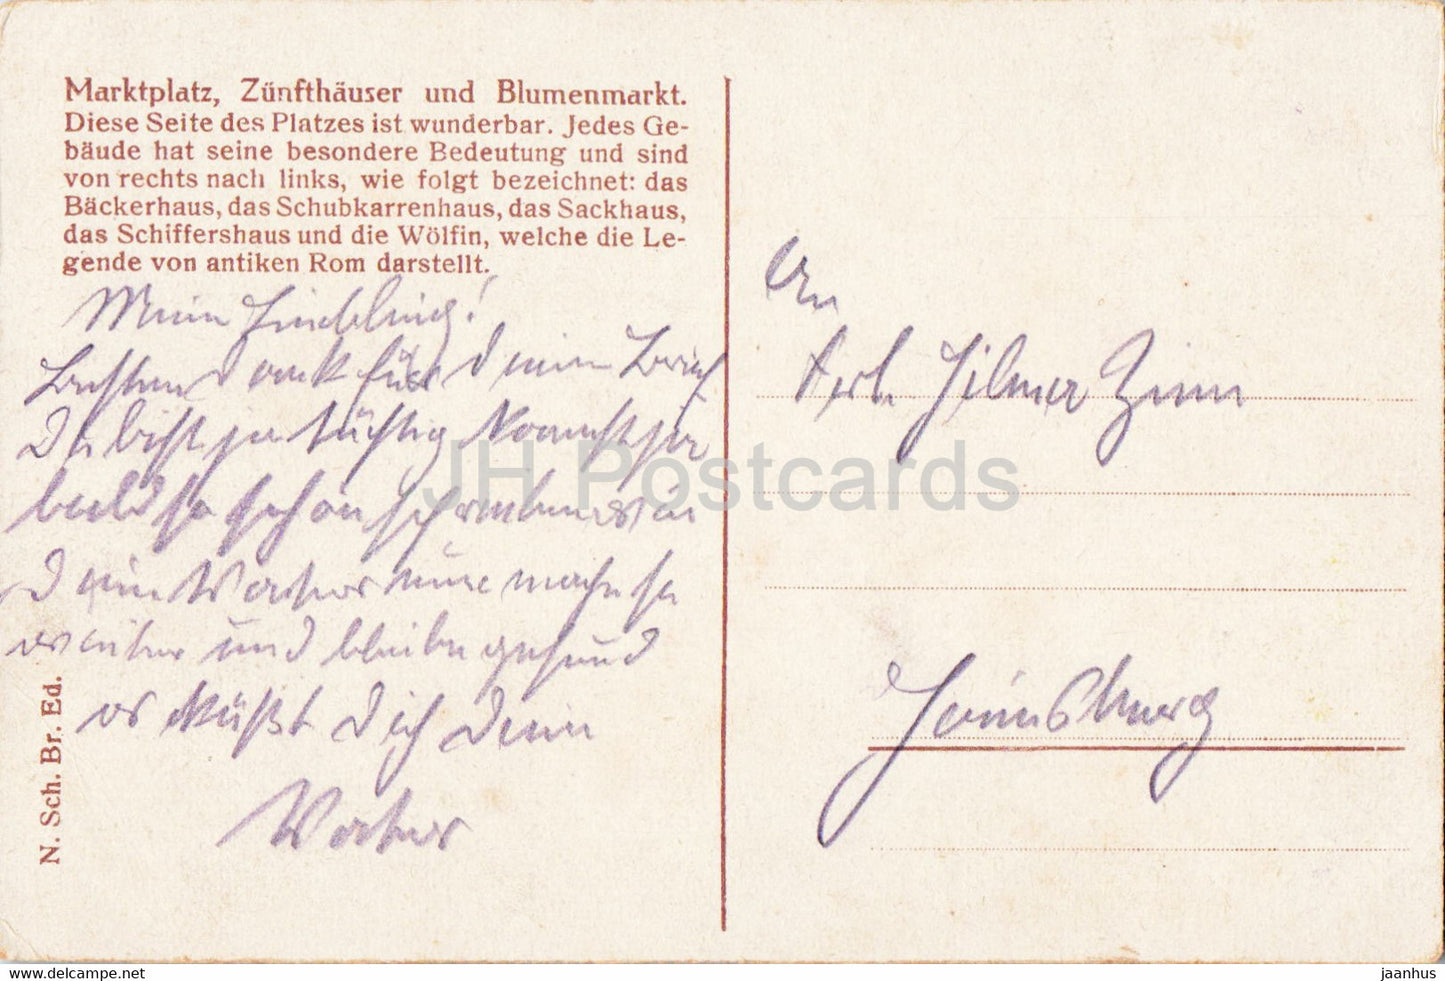 Marktplatz, Zünfthäuser und Blumenmarkt.
Diese Seite des Platzes ist wunderbar. Jedes Ge-
bäude hat seine besondere Bedeutung und sind
von rechts nach links, wie folgt bezeichnet: das
Bäckerhaus, das Schubkarrenhaus, das Sackhaus,
das Schiffershaus und die Wölfin, welche die Le-
gende von antiken Rom darstellt.
Mein Liebling!
Besten Dank für Deinen Brief
Du bist ja tüchtig kannst ja
bald so schön schreiben wie
Dein Vater nun mache so
weiter und bleibe gesund
es küßt Dich Dein
Vater
N. Sch. Br. Ed.
An
Frl. Hilma Zinn
JH Postcards
www.delcampe.net
jaanhus